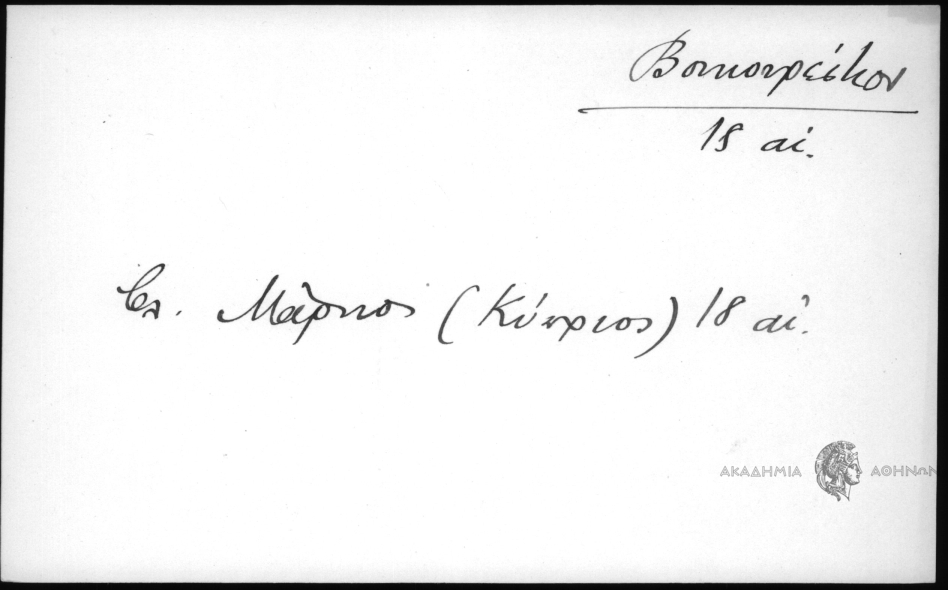 Βουκουρέστιον
18 αἰ.
Βλ. Μᾶρκος (Κύπριος) 18 αἰ.
ΑΚΑΔΗΜΙΑ ΑΘΗΝΩΝ